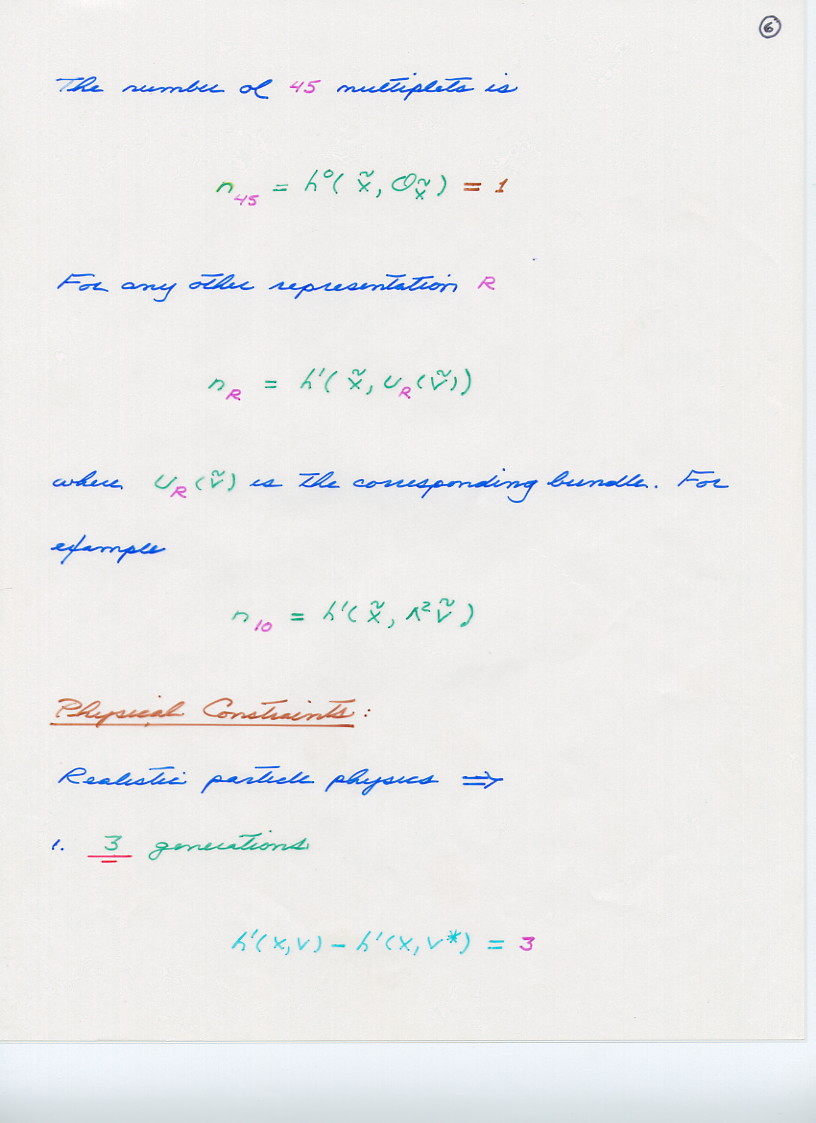 6
The number of 45 multiplets is
n₄₅ = h⁰( X̃, O_X̃ ) = 1
For any other representation R
n_R = h¹( X̃, U_R(Ṽ))
where U_R(Ṽ) is the corresponding bundle. For
example
n₁₀ = h¹( X̃, Λ²Ṽ )
Physical Constraints:
Realistic particle physics ⇒
1. 3 generations
h¹(X,V) – h¹(X,V*) = 3